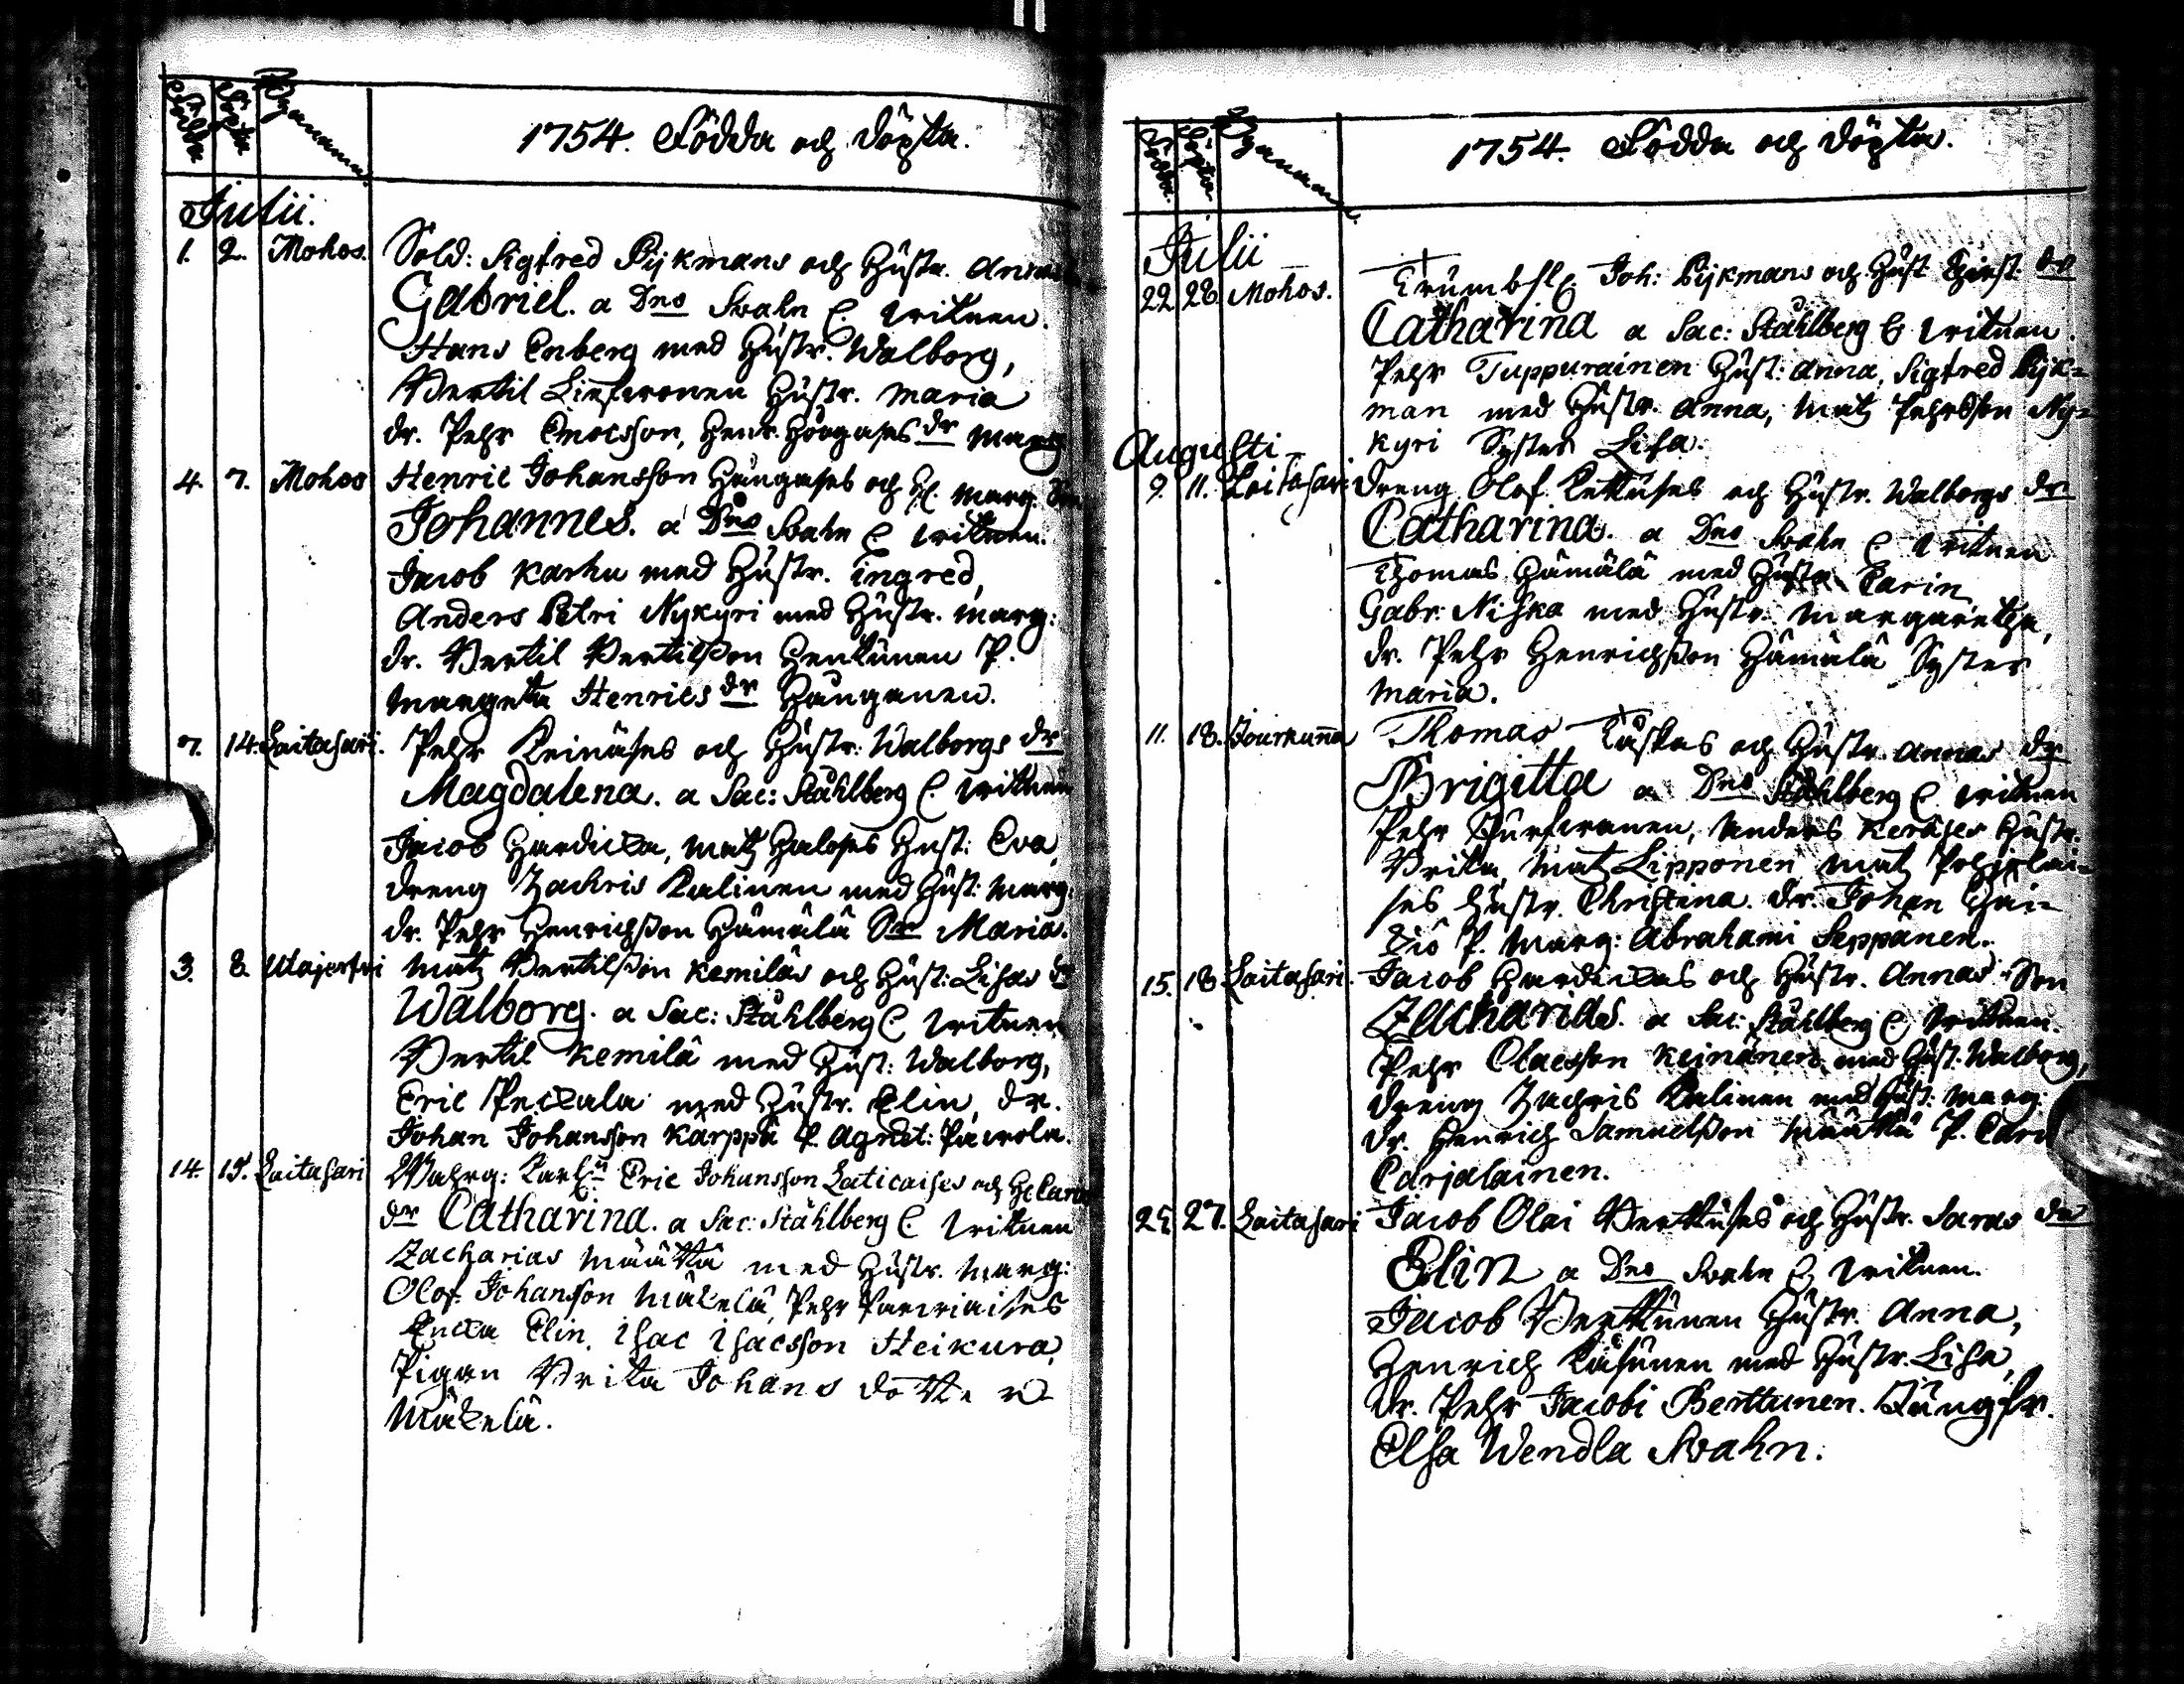 Födda
Döpta
Bynamn
1754. Födda och Döpta.
Julii.
1. 2. Mohos. Sold: Sigfred Rijkmans och Hustr. Annas
Gabriel. a Dno Svahn C. Vitnen.
Hans Enberg med Hustr. Walborg,
Bertil Hustr. Maria
dr. Pehr dr Marg
4. 7. Mohos Henric Johansson och H. Marg. Son
Johannes. a Dno Svahn C Vitnen.
Jacob Karhu med Hustr. Ingred,
Anders Petri Nykyri med Hustr. Marg:
dr. Bertil Bertilsson Hentunen P.
Margeta Henrics dr Haurganen.
7. 14. Laitasari. Pehr Keinäses och Hustr: Walborgs dr
Magdalena. a Sac: Ståhlberg C. Vitnen
Jacob Hardicka, Matz Haloses Hust: Eva,
dreng Zachris Kalinen med Hust: Marg.
dr. Pehr Henrichsson Hämälä Sr Maria.
3. 8. Utajerfvi Matz Bertilsson Kemiläs och Hust: Lisas dr
Walborg. a Sac: Ståhlberg C. Vitnen
Bertil Kemilä med Hust: Walborg,
Eric Peckala med Hustr. Elin, dr.
Johan Johansson Karppa P. Agnet: Pawola.
14. 15. Laitasari Eric Johansson Laticaises och H: Carin
dr Catharina. a Sac: Ståhlberg C. Vitnen
Zacharias Määttä med Hustr. Marg:
Olof Johansson Mäkelä, Pehr Parviaises
Encka Elin, Isac Isacsson Heikura,
Pigan Brita Johans dotter
Mäkelä.
Födda
Döpta
Bynamn
1754. Födda och Döpta.
Julii
22 28. Mohos. Trumbsl. Joh: Rijkmans och Hust dr
Catharina a Sac: Ståhlberg C Vitnen.
Pehr Tuppurainen Hust: Anna, Sigfred Rijk=
man med Hustr. Anna, Matz Pehrsson Ny=
kyri Syster Lisa.
Augusti
9. 11. Laitasari Dreng Olof Kettuses och Hustr. Walborgs dr
Catharina. a Dno Svahn C. Vitnen
Thomas Hämälä med Hustr Carin
Gabr: Niska med Hustr. Margaretha,
dr. Pehr Henrichsson Hämälä Syster
Maria.
11. 18. Jourkuña Thomas och Hustr. Annas dr
Brigitta a Dno Ståhlberg C. Vitnen
Pehr Anders Keräses Hustr.
Brita, Matz Lipponen Matz Pohjolai=
ses Hustr. Christina. dr. Johan
P. Marg: Abrahami Seppänen.
15. 18 Laitasari. Jacob Hardickas och Hustr. Annas Son
Zacharias. a Sac: Ståhlberg C Vitnen.
Pehr Olaesson Keinänen med Hust. Walborg,
Dreng Zachris Kalinen med Hust: Marg:
dr. Henrich Samuelsson Määttä P. Carin
Carjalainen.
25. 27. Laitasari Jacob Olai Berttuses och Hustr. Saras dr
Elin a Dno Svahn C Vitnen.
Jacob Berttunen Hustr. Anna,
Henrich Räsänen med Hustr. Lisa,
dr. Pehr Jacobi Berttunen. Jungfr.
Elsa Wendla Svahn.